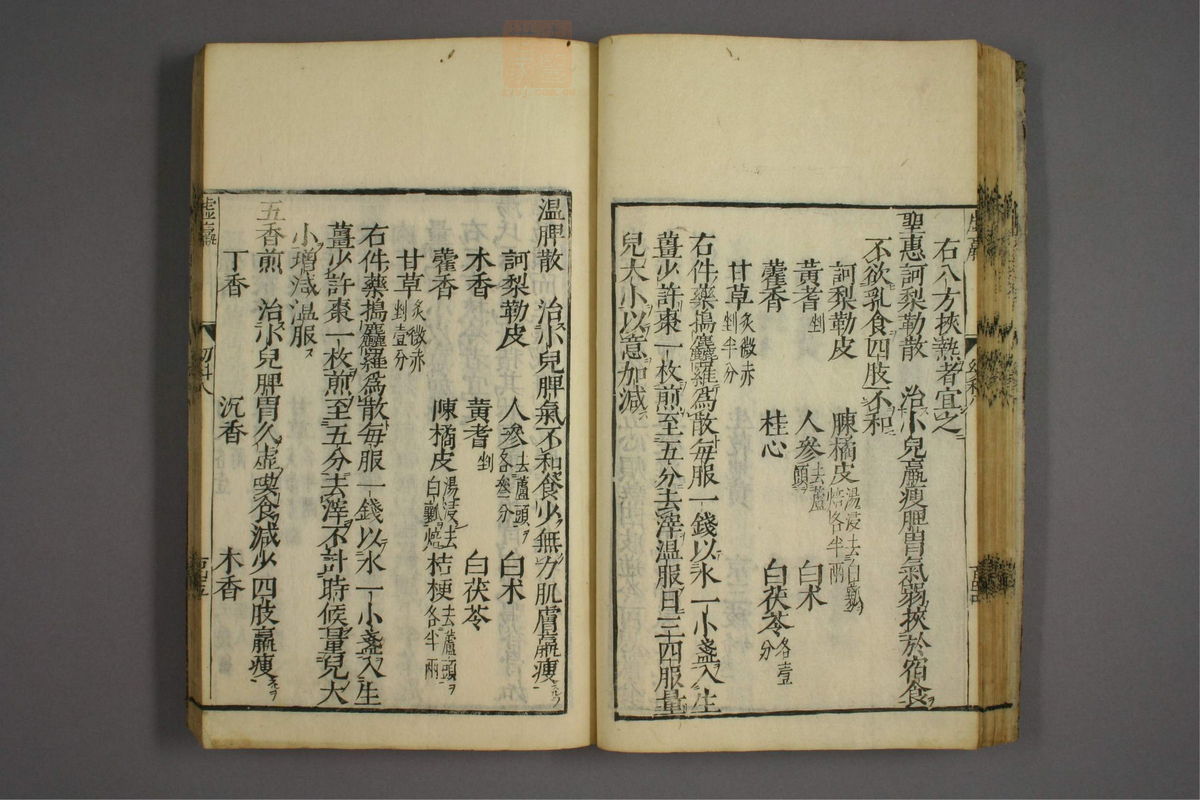 右八方挾熱者宜之
聖惠訶梨勒散　治小兒羸瘦脾胃氣弱挾於宿食
不欲乳食四肢不和
訶梨勒皮　陳橘皮湯浸去白瓤焙各半兩
黃耆剉　人參去蘆頭　白术
藿香　桂心　白茯苓各壹分
甘草炙微赤剉半分
右件藥搗麤羅為散每服一錢以水一小盞入生
薑少許棗一枚煎至五分去滓溫服日三四服量
兒大小以意加減
溫脾散　治小兒脾氣不和食少無力肌膚羸瘦
訶梨勒皮　人參去蘆頭各叁分　白术
木香　黃耆剉　白茯苓
藿香　陳橘皮湯浸去白瓤焙　桔梗去蘆頭各半兩
甘草炙微赤剉壹分
右件藥搗麤羅為散每服一錢以水一小盞入生
薑少許棗一枚煎至五分去滓不計時候量兒大
小增減溫服
五香煎　治小兒脾胃久虛喫食減少四肢羸瘦
丁香　沉香　木香
虛羸